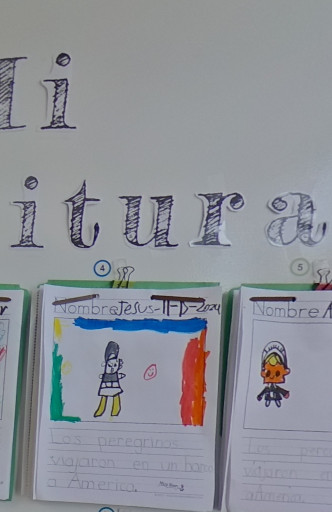 Mi
itura
4
5
Nombre Jesus-11-15-2024
Los peregrinos
viajaron en un barco
a America.
Nombre A
Los pere
viajaron e